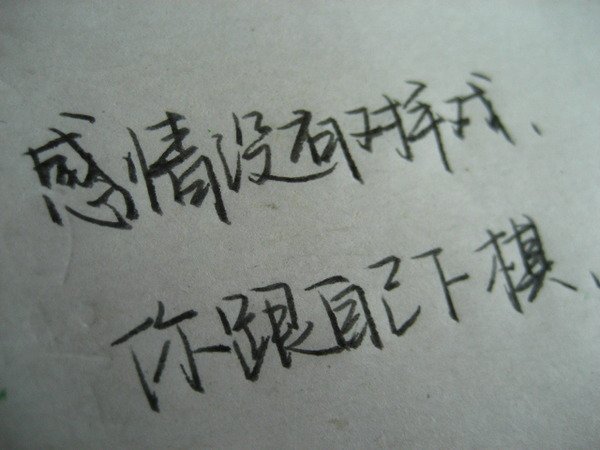 感情没有对手戏、
你跟自己下棋、